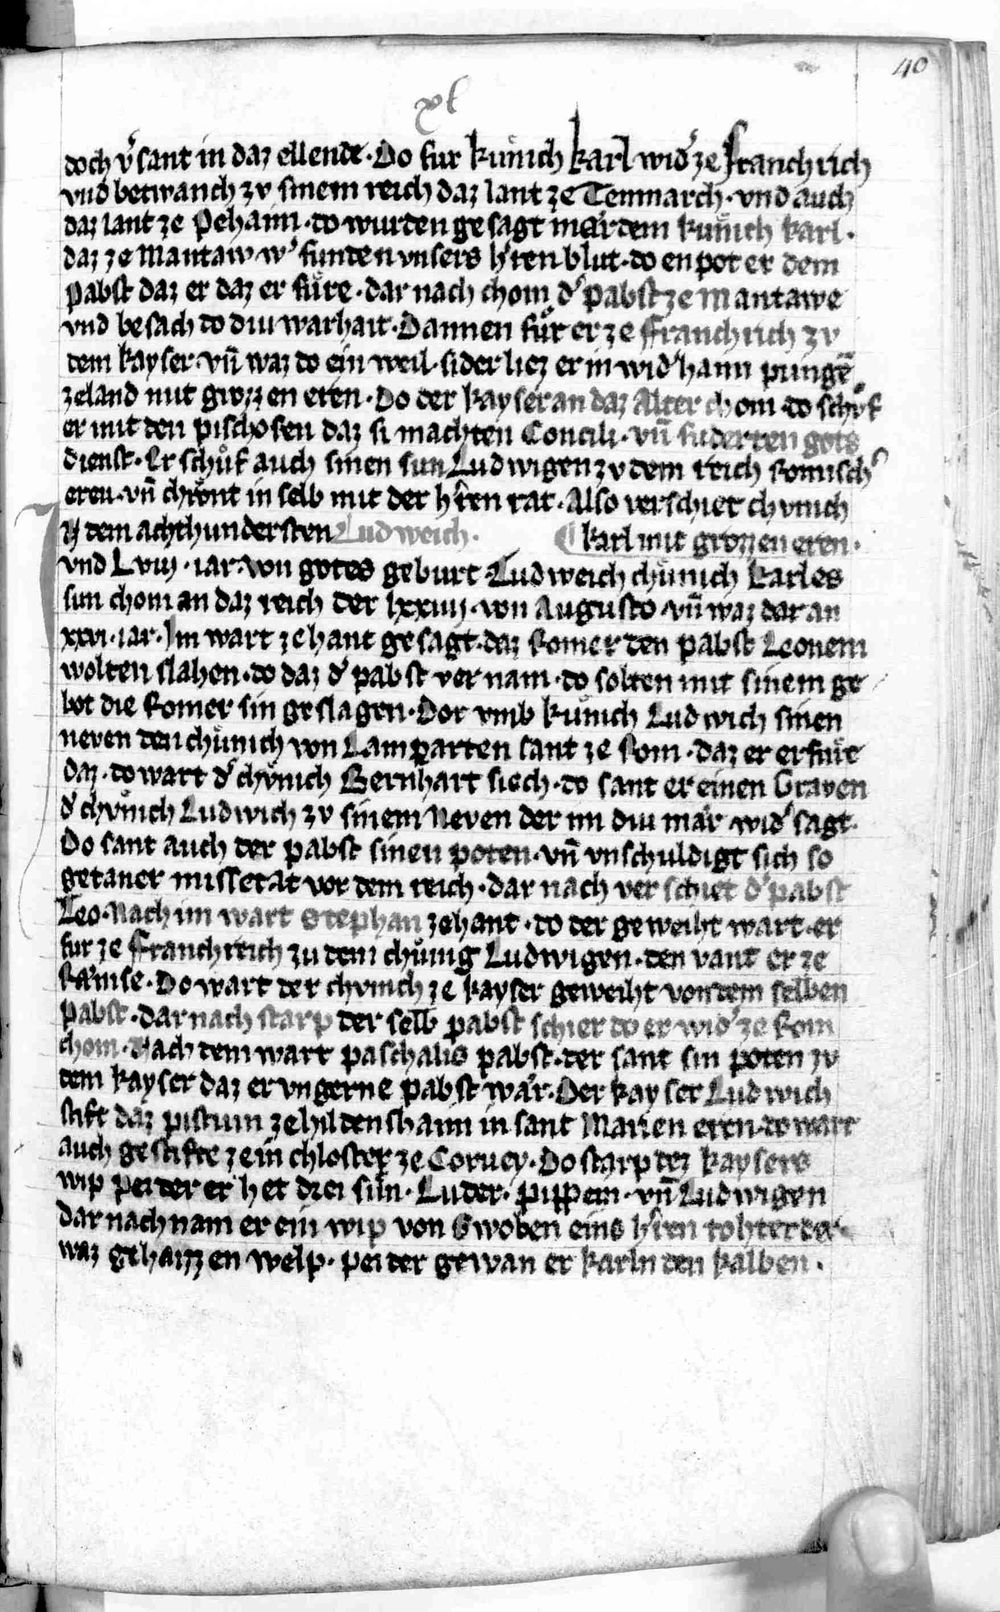 40
xl
doch v̉sant in daz ellende · Do fur kůnich karl wid̉ ze franchrich
vnd betwanch zv sinem reich daz lant ze Tenmarch · vnd auch
daz lant ze Pehaim · do wurden gesagt mår dem kůnich karl ·
daz ze Mantaw w̉ funden vnsers h̉ren blut · do enpot er dem
Pabst daz er daz er fůre · dar nach chom d̉ pabst ze Mantawe
vnd besach do diu warhait · Dannen fůr er ze franchrich zv
dem kayser · vn̄ waz do ein weil · sider liez er in wid̉ haim pringē
ze land mit grozzen eren · Do der kayser an daz Alter chom · do schůf
er mit den pischofen daz si machten Concili · vn̄ fuderten gots
dienst · Er schůf auch sinen sun Ludwigen zv dem reich Romisch̉
eren · vn̄ chrönt in selb mit der h̉ren rat · Also verschiet chvnich
N dem achthundersten Ludweich · karl mit grozzen eren ·
vnd Lviij · iar · von gotes geburt · Ludweich chůnich karles
sun chom an daz reich der lxxiiij · von Augusto · vn̄ waz dar an
xxvi · iar · Im wart zehant gesagt · daz Romer den pabst Leonem
wolten slahen · do daz d̉ pabst vernam · do solten mit sinem ge
bot die Romer sin geslagen · Dor vmb kůnich Ludwich sinen
neven den chůnich von Lamparten sant ze Rom · daz er erfůre
daz · do wart d̉ chv̊nich Bernhart siech · do sant er einen Graven
d̉ chv̊nich Ludwich zv sinem Neven der im diu mår wid̉ sagt ·
Do sant auch der pabst sinen poten · vn̄ vnschuldigt sich so
getaner missetat vor dem reich · dar nach verschiet d̉ pabst
Leo · Nach im wart Stephan zehant · do der geweiht wart · er
fur ze franchreich zu dem chůnig Ludwigen · den vant er ze
Råmse · Do wart der chvnich ze kayser geweiht von dem selben
pabst · dar nach starp der selb pabst schier do er wid̉ ze Rom
chom · Nach dem wart paschalis pabst · der sant sin poten zv
dem kayser daz er vngerne pabst wår · Der kayser Ludwich
stift daz pistum ze hildenshaim in sant Marien eren · do wart
auch gestifte ze ein chloster ze Corvey · Do starp dez kaysers
wip pei der er het drei sůn · Luder · pippein · vn̄ Ludwigen
dar nach nam er ein wip von Swoben eins h̉ren tohter der
waz gehaizzen welp · pei der gewan er karln den kalben ·